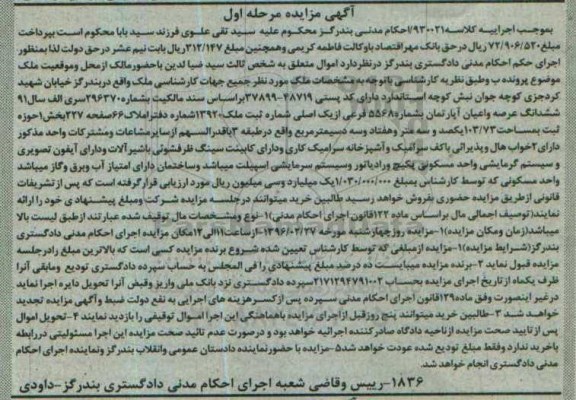 آگهی مزایده مرحله اول
بموجب اجراییه کلاسه ۹۳۰۰۲۱/احکام مدنی بندرگز محکوم علیه سید تقی علوی فرزند سید بابا محکوم است بپرداخت
مبلغ ۷۲/۹۰۶/۵۲۰ ریال در حق بانک مهر اقتصاد با وکالت فاطمه کریمی و همچنین مبلغ ۳۱۲/۱۴۷ ریال بابت نیم عشر در حق دولت لذا بمنظور
اجرای حکم احکام مدنی دادگستری بندرگز در نظر دارد اموال متعلق به شخص ثالث سید ضیا لدین باحضور مالک از محل وموقعیت ملک
موضوع پرونده ب وطبق نظریه کارشناسی باتوجه به مشخصات ملک مورد نظر جمیع جهات کارشناسی ملک واقع در بندرگز خیابان شهید
کردجزی کوچه جوان نبش کوچه استاندارد دارای کد پستی ۴۸۷۱۹-۳۷۸۹۹ براساس سند مالکیت بشماره ۲۹۶۳۷۰ سری الف سال ۹۱
ششدانگ عرصه واعیان آپارتمان بشماره ۵۵۶۸ فرعی از یک اصلی شماره ثبت ملک ۱۳۹۲۰ شماره دفتر املاک ۶۶ صفحه ۲۲۷ بخش ۱ حوزه
ثبت بمساحت ۱۰۳/۷۳ یکصد و سه متر وهفتاد وسه دسیمتر مربع واقع در طبقه ۳ باقدرالسهم از سایر مشاعات ومشترکات واحد مذکور
دارای ۲ خواب هال وپذیرائی باکف سرامیک وآشپزخانه سرامیک کاری ودارای کابینت سینگ ظرفشوئی باشیر آلات ودارای آیفون تصویری
و سیستم گرمایشی واحد مسکونی پکیج ورادیاتور وسیستم سرمایشی اسپیلت میباشد وساختمان دارای امتیاز آب وبرق وگاز میباشد
واحد مسکونی که توسط کارشناس بمبلغ ۱/۰۳۰/۰۰۰/۰۰۰ یک میلیارد وسی میلیون ریال مورد ارزیابی قرار گرفته است که پس از تشریفات
قانونی از طریق مزایده حضوری بفروش خواهد رسید طالبین خرید میتوانند در جلسه مزایده شرکت ومبلغ پیشنهادی خود را ارائه
نمایند(توصیف اجمالی مال براساس ماده ۱۲۲ قانون اجرای احکام مدنی)۱-نوع ومشخصات مال توقیف شده عبارتند از طبق لیست بالا
میباشد(زمان ومکان مزایده)۱-مزایده روز چهارشنبه مورخه ۱۳۹۶/۰۲/۲۷-از ساعت ۱۱الی۱۲ مکان مزایده اجرای احکام مدنی دادگستری
بندرگز(شرایط مزایده)۱-مزایده از مبلغی که توسط کارشناس تعیین شده شروع برنده مزایده کسی است که بالاترین مبلغ را در جلسه
مزایده قبول نماید ۲-برنده مزایده میبایست ده درصد مبلغ پیشنهادی را فی المجلس به حساب سپرده دادگستری تودیع ومابقی آنرا
ظرف یکماه از تاریخ اجرای مزایده بحساب ۲۱۷۱۲۹۴۷۹۱۰۰۲ سپرده دادگستری نزد بانک ملی واریز وقبض آنرا تحویل دایره اجرا نماید
در غیر اینصورت وفق ماده ۱۲۹ قانون اجرای احکام مدنی سپرده پس از کسر هزینه های اجرایی به نفع دولت ضبط وآگهی مزایده تجدید
خواهد شد ۳-طالبین خرید میتوانند پنج روز قبل از اجرای مزایده باهماهنگی این اجرا اموال توقیفی را بازدید نمایند ۴-تحویل اموال
پس از تایید صحت مزایده از ناحیه دادگاه صادر کننده اجرائیه خواهد بود و در صورت عدم تائید صحت مزایده این اجرا مسئولیتی در رابطه
باخرید ندارد وفقط مبلغ تودیع شده عودت خواهد شد ۵-مزایده باحضور نماینده دادستان عمومی وانقلاب بندرگز ونماینده اجرای احکام
مدنی دادگستری انجام خواهد شد.
۱۸۳۶-رییس وقاضی شعبه اجرای احکام مدنی دادگستری بندرگز-داودی